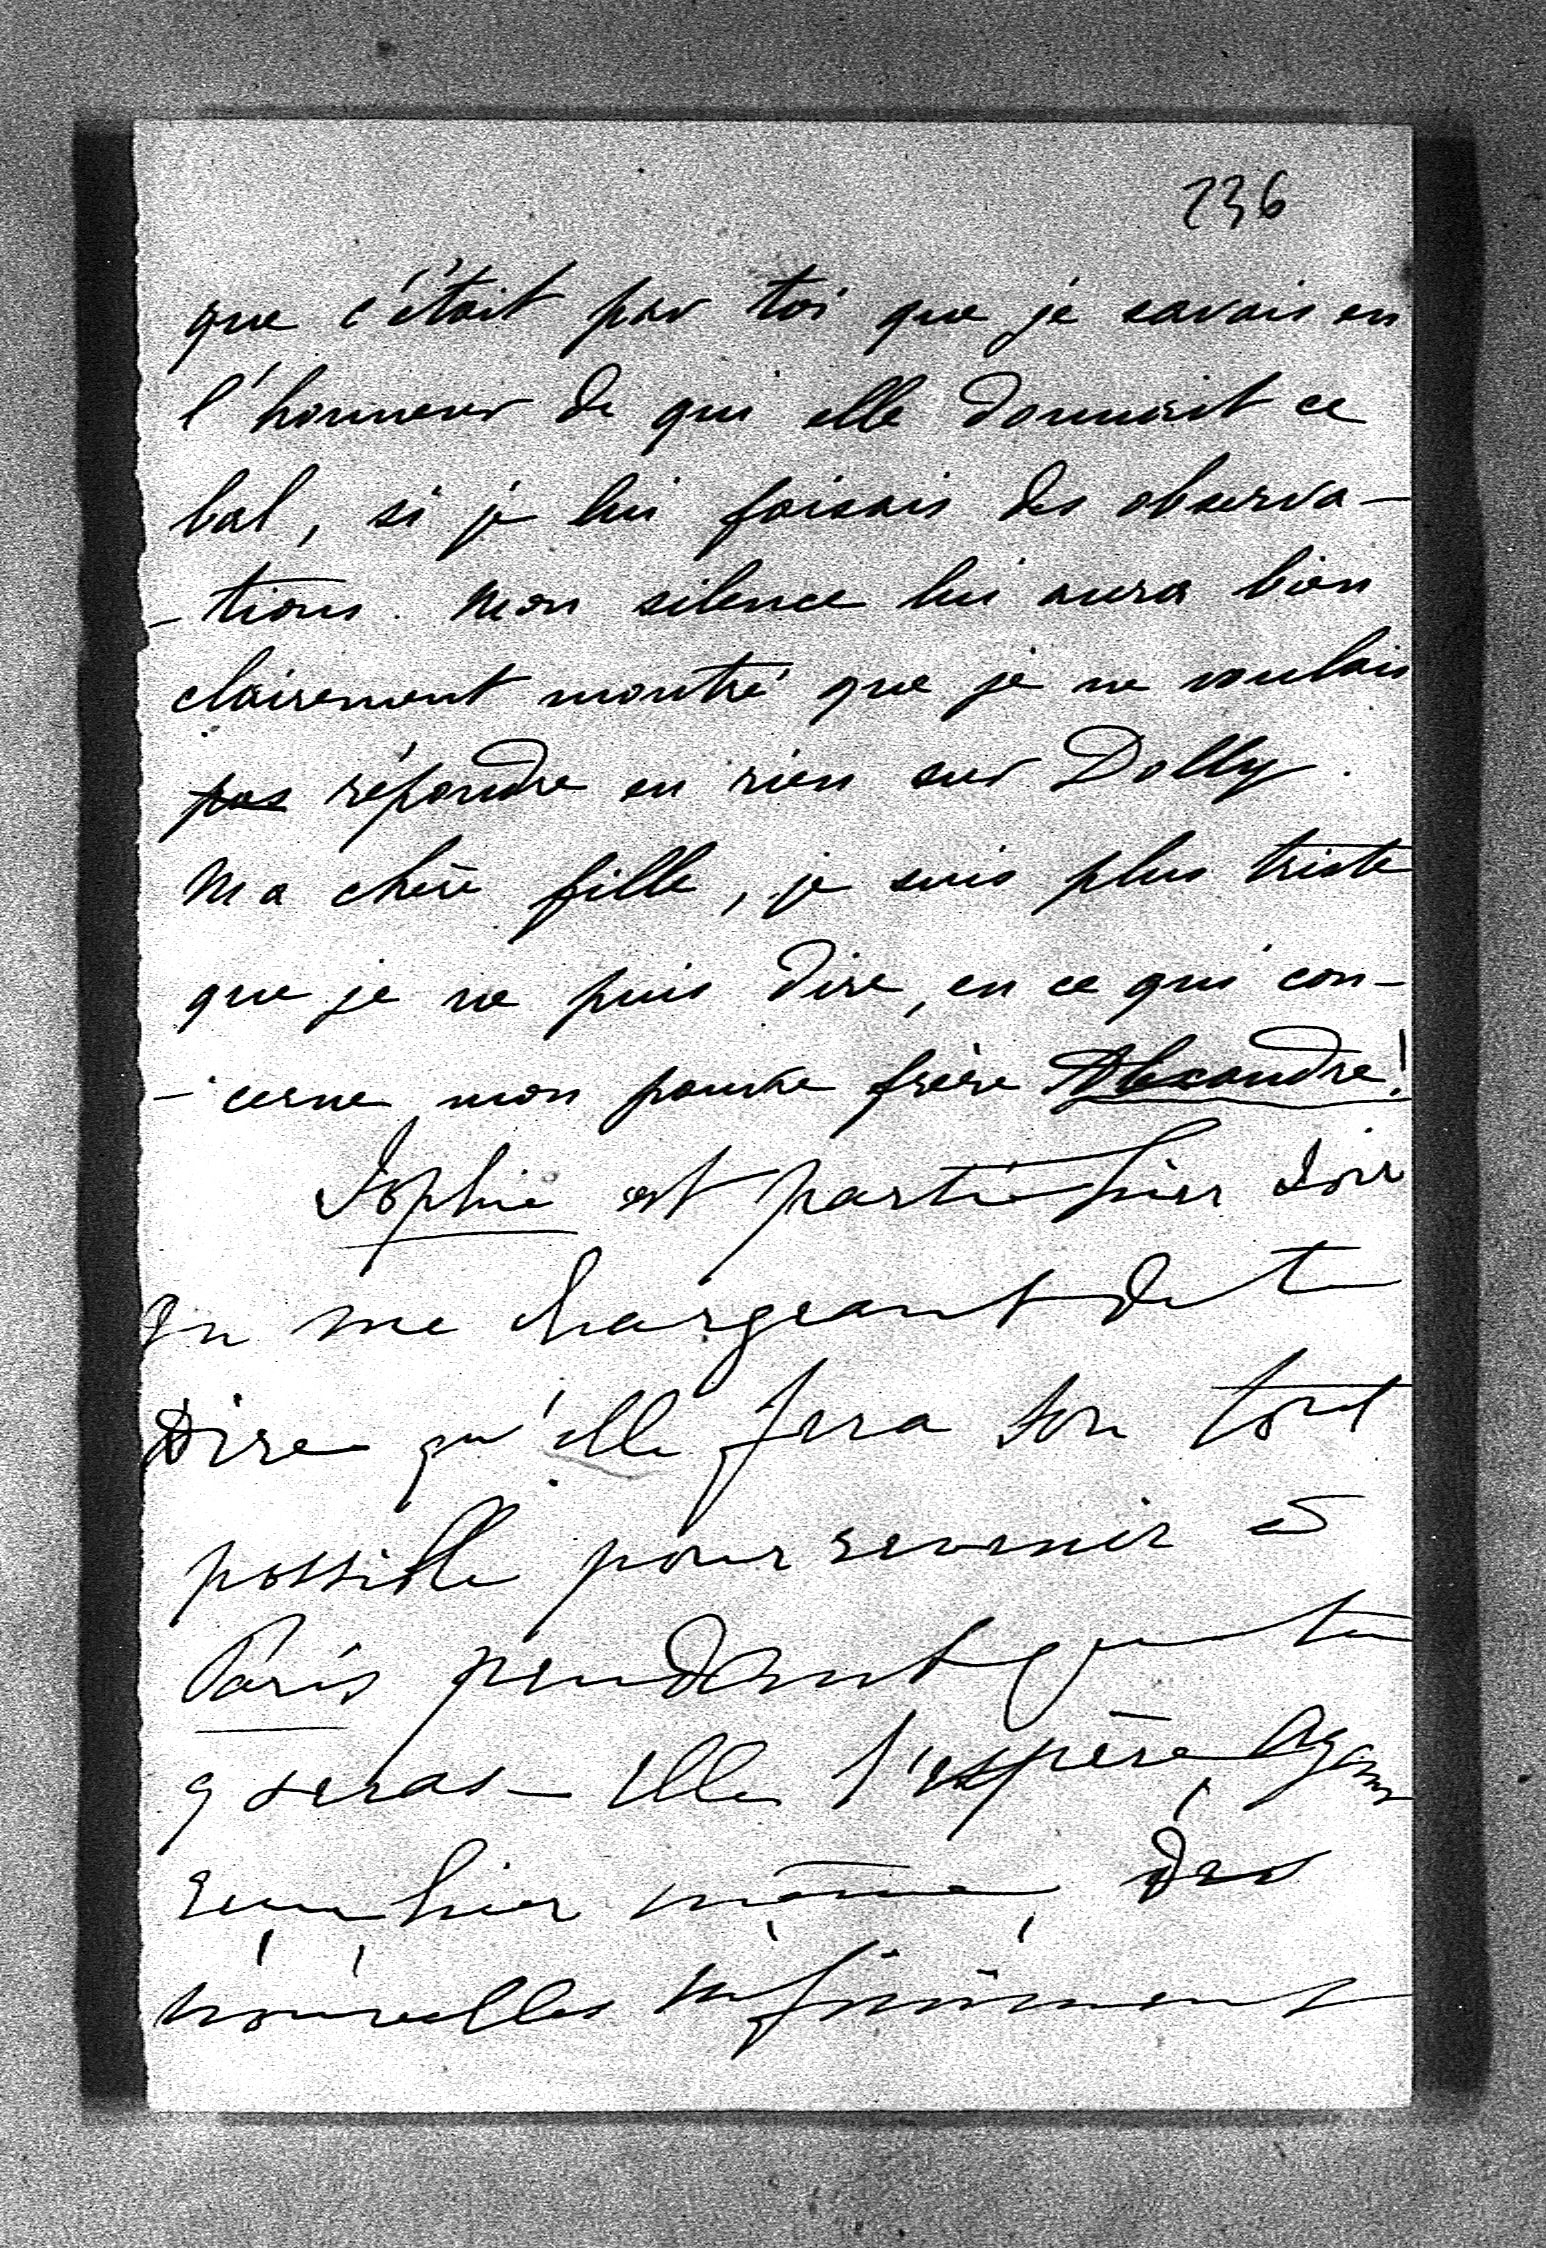 236
que c'était par toi que je savais en
l'honneur de qui elle donnait ce
bal, si je lui faisais des observa-
-tions. Mon silence lui aura bien
clairement montré que je ne voulais
pas répondre en rien sur Dolly.
Ma chère fille, je suis plus triste
que je ne puis dire, en ce qui con-
-cerne mon pauvre frère Alexandre!
Sophie est partie hier soir
en me chargeant de te
Dire qu'elle fera son tout
possible pour revenir à
Paris pendant que tu
y seras – Elle l'espère Ayant
reçu hier même des
nouvelles infiniment